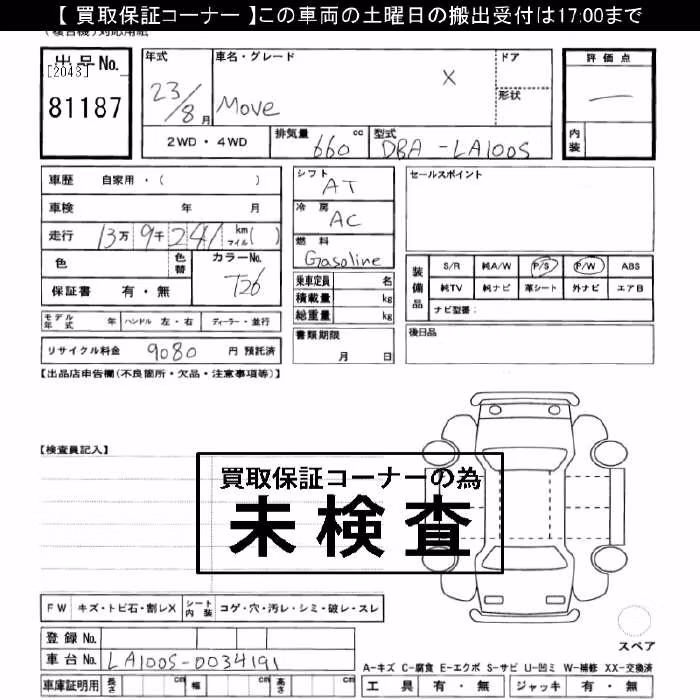 【 買取保証コーナー 】この車両の土曜日の搬出受付は17:00まで
出品No.
[2043]
81187
年式 23/8月
車名・グレード Move X
ドア
形状
評価点 —
内装
2WD・4WD
排気量 660 cc
型式 DBA-LA100S
車歴 自家用・( )
車検 年 月
走行 13万9千241 km マイル( )
色
色替
カラーNo. T26
保証書 有・無
モデル年式 年 ハンドル 左・右 ディーラー・並行
リサイクル料金 9080 円 預託済
シフト AT
冷房 AC
燃料 Gasoline
乗車定員 名
積載量 kg
総重量 kg
書類期限
月 日
セールスポイント
装備品
S/R 純A/W P/S P/W ABS
純TV 純ナビ 革シート 外ナビ エアB
ナビ型番:
後日品
【出品店申告欄(不良箇所・欠品・注意事項等)】
【検査員記入】
買取保証コーナーの為
未検査
FW キズ・トビ石・割レX シート内装 コゲ・穴・汚レ・シミ・破レ・スレ
登録No.
車台No. LA100S-0034191
車庫証明用 長さ cm 幅 cm 高さ cm
スペア
A-キズ C-腐食 E-エクボ S-サビ U-凹ミ W-補修 XX-交換済
工具 有・無 ジャッキ 有・無